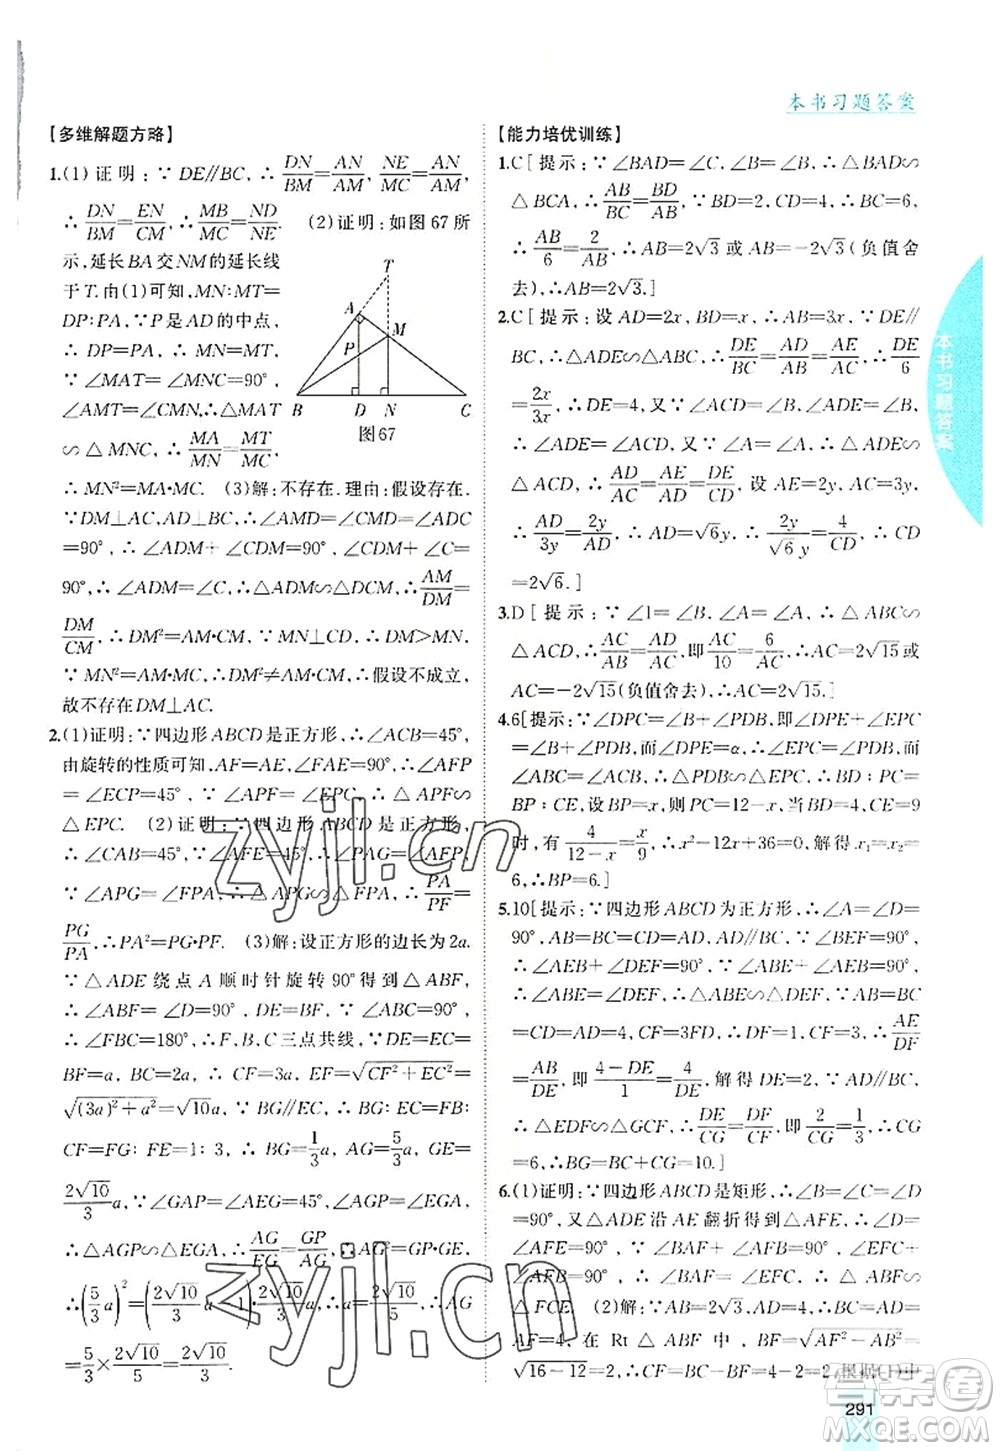 本书习题答案
【多维解题方略】
1.(1)证明:∵DE∥BC,∴DN/BM=AN/AM,NE/MC=AN/AM,
∴DN/BM=EN/CM,∴MB/MC=ND/NE. (2)证明:如图67所
示,延长BA交NM的延长线
于T.由(1)可知,MN∶MT=
DP∶PA,∵P是AD的中点,
∴DP=PA,∴MN=MT,
∵∠MAT=∠MNC=90°,
∠AMT=∠CMN,∴△MAT
∽△MNC,∴MA/MN=MT/MC,
T
A
M
P
B D N C
图67
∴MN²=MA·MC. (3)解:不存在.理由:假设存在.
∵DM⊥AC,AD⊥BC,∴∠AMD=∠CMD=∠ADC
=90°,∴∠ADM+∠CDM=90°,∠C+∠CDM=
90°,∴∠ADM=∠C,∴△ADM∽△DCM,∴AM/DM=
DM/CM,∴DM²=AM·MC,∵MN⊥BC,∴DM>MN,
∴MN²≠AM·MC,这与(2)中结论相矛盾,假设不成立,
故不存在DM⊥AC.
2.(1)证明:∵四边形ABCD是正方形,∴∠ACB=45°,
由旋转的性质可知,AF=AE,∠EAF=90°,∴∠AFP
=45°,∴∠AFP=∠ECP=45°,∵∠APF=∠EPC,∴△APF∽
△EPC. (2)证明:∵四边形ABCD是正方形,
∴∠CAB=45°,∵∠AFE=45°,∴∠PAG=∠AFP,
∵∠APG=∠FPA,∴△APG∽△FPA,∴PA/PF=
PG/PA,∴PA²=PG·PF. (3)解:设正方形的边长为2a.
∵△ADE绕点A顺时针旋转90°得到△ABF,
∴∠ABF=∠D=90°,DE=BF,∵∠ABC=90°,∴∠ABF+
∠FBC=180°,∴F,B,C三点共线,∵DE=EC=
BF=a,BC=2a,∴CF=3a,EF=√(CF²+EC²)=
√((3a)²+a²)=√10a,∵BG∥EC,∴BG∶EC=FB∶
CF=FG∶FE=1∶3,∴BG=1/3a,AG=5/3a,GE=
2√10/3a,∵∠GAP=∠AEG=45°,∠AGP=∠EGA,
∴△AGP∽△EGA,∴AG/EG=GP/AG,∴AG²=GP·EG,
=5/3×2√10/5=2√10/3.
【能力培优训练】
1.C[提示:∵∠BAD=∠C,∠B=∠B,∴△BAD∽
△BCA,∴AB/BC=BD/AB.∵BD=2,CD=4,∴BC=6,
∴AB/6=2/AB,∴AB=2√3或AB=-2√3(负值舍
去),∴AB=2√3.]
2.C[提示:设AD=2x,BD=x,∴AB=3x,∵DE∥
BC,∴△ADE∽△ABC,∴DE/BC=AD/AB=AE/AC,∴DE/6
=2x/3x,∴DE=4,又∵∠ACD=∠B,∠ADE=∠B,
∴∠ADE=∠ACD,又∵∠A=∠A,∴△ADE∽
△ACD,∴AD/AC=AE/AD=DE/CD,设AE=2y,AC=3y,
∴AD/3y=2y/AD,∴AD=√6y,∴2y/√6y=4/CD,∴CD
=2√6.]
3.D[提示:∵∠1=∠C,∠A=∠A,∴△ABC∽
△ACD,∴AC/AB=AD/AC,即AC/10=6/AC,∴AC=2√15或
AC=-2√15(负值舍去),∴AC=2√15.]
4.6[提示:∵∠DPC=∠B+∠PDB,即∠DPE+∠EPC
=∠B+∠PDB,而∠DPE=α,∴∠EPC=∠PDB,而
∠ABC=∠ACB,∴△PBD∽△EPC,∴BD∶PC=
BP∶CE,设BP=x,则PC=12-x,当BD=4,CE=9
时,有4/(12-x)=x/9,∴x²-12x+36=0,解得x₁=x₂=
6,∴BP=6.]
5.10[提示:∵四边形ABCD为正方形,∴∠A=∠D=
90°,AB=BC=CD=AD,AD∥BC,∵BE⊥EF,
∴∠AEB+∠DEF=90°,∵∠AEB+∠ABE=90°,
∴∠ABE=∠DEF,∴△ABE∽△DEF,∵AB=BC
=CD=AD=4,CF=3FD,∴DF=1,CF=3,∴AE/DF
=AB/DE,即(4-DE)/1=4/DE,解得DE=2,∵AD∥BC,
∴△EDF∽△GCF,∴DE/CG=DF/CF,即2/CG=1/3,
∴CG=6,∴BG=BC+CG=10.]
6.(1)证明:∵四边形ABCD是矩形,∴∠B=∠C=∠D
=90°,又△ADE沿AE翻折得到△AFE,∴∠D=
∠AFE=90°,∴∠AFB+∠EFC=90°,∵∠BAF+
∠AFB=90°,∴∠BAF=∠EFC,∴△ABF∽
△FCE. (2)解:∵AB=2√3,AD=4,∴BC=
AF=4,在Rt△ABF中,BF=√(AF²-AB²)=
√(16-12)=2,∴FC=BC-BF=4-2=2,根据(1)中
本书习题答案
291
zyjl.cn
zyjl.cn
答案圈